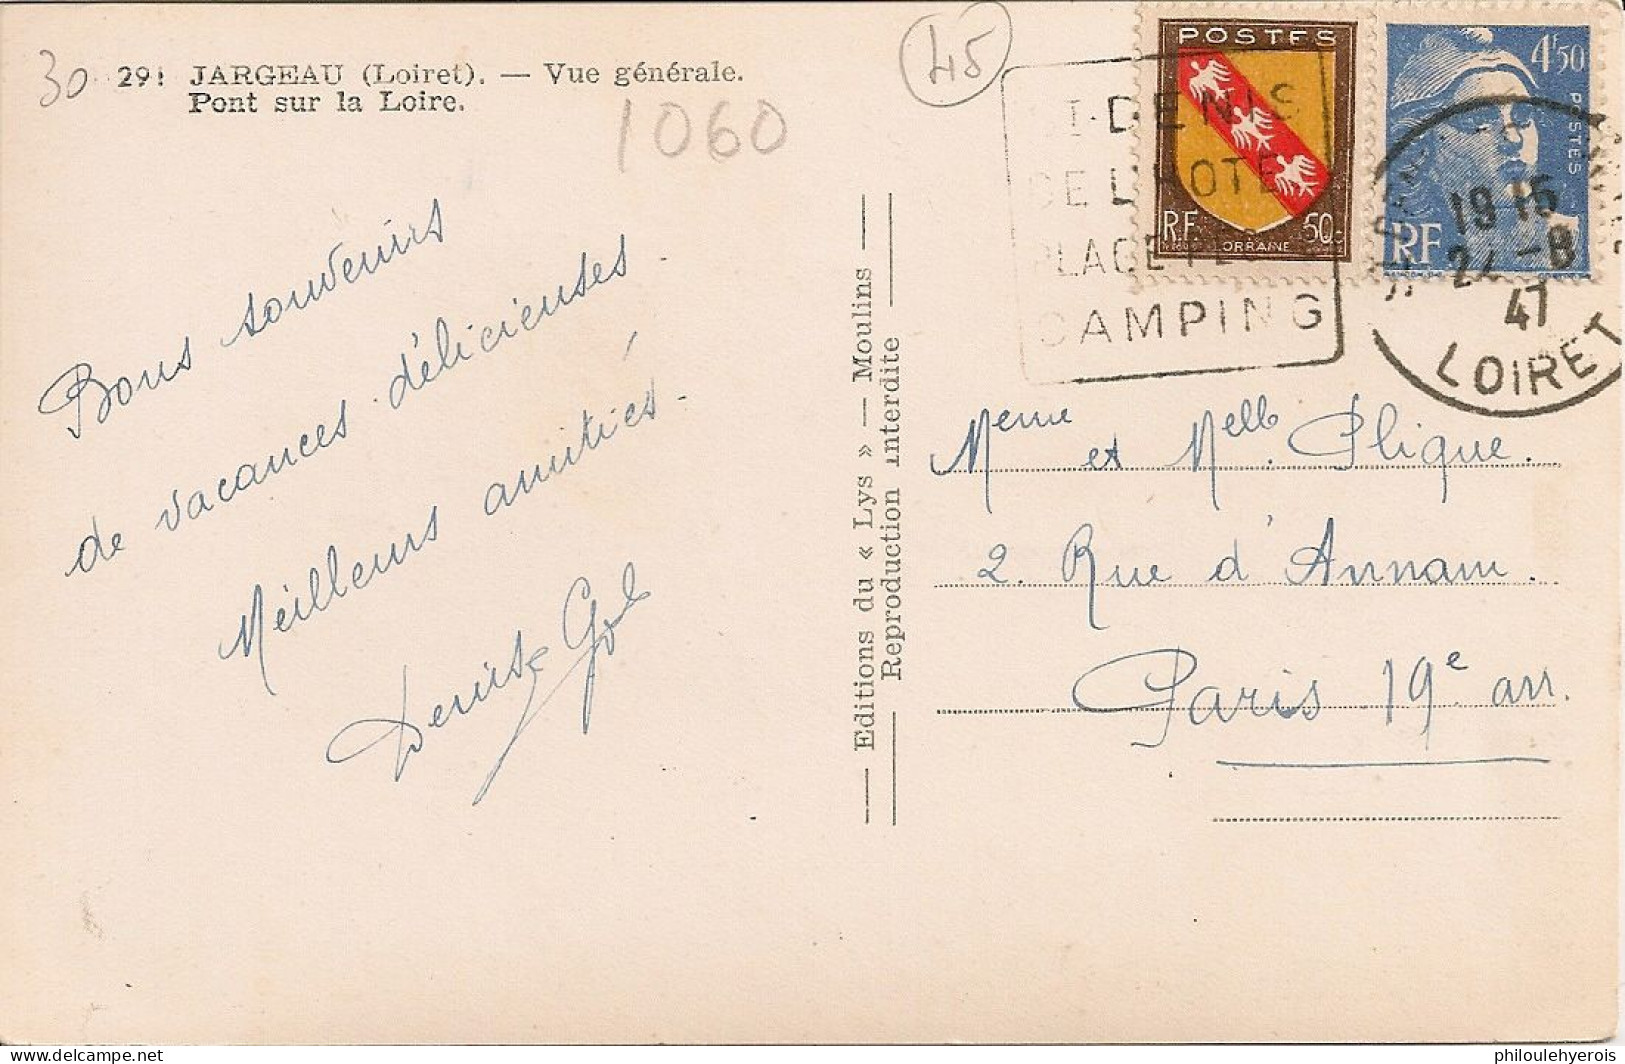 30 291 JARGEAU (Loiret). — Vue générale.
Pont sur la Loire.
1060
45
Bons souvenirs
de vacances délicieuses.
Meilleures amitiés.
Denise
Editions du « Lys » — Moulins
Reproduction interdite
POSTES
RF LORRAINE 50c
4F50
POSTES
RF
DENIS
DE L'HOTEL
PLAGE
CAMPING
19 15
24 -8
47
LOIRET
Meme et Melle. Plique.
2. Rue d'Annam.
Paris 19e arr.
delcampe.net
philoulehyerois